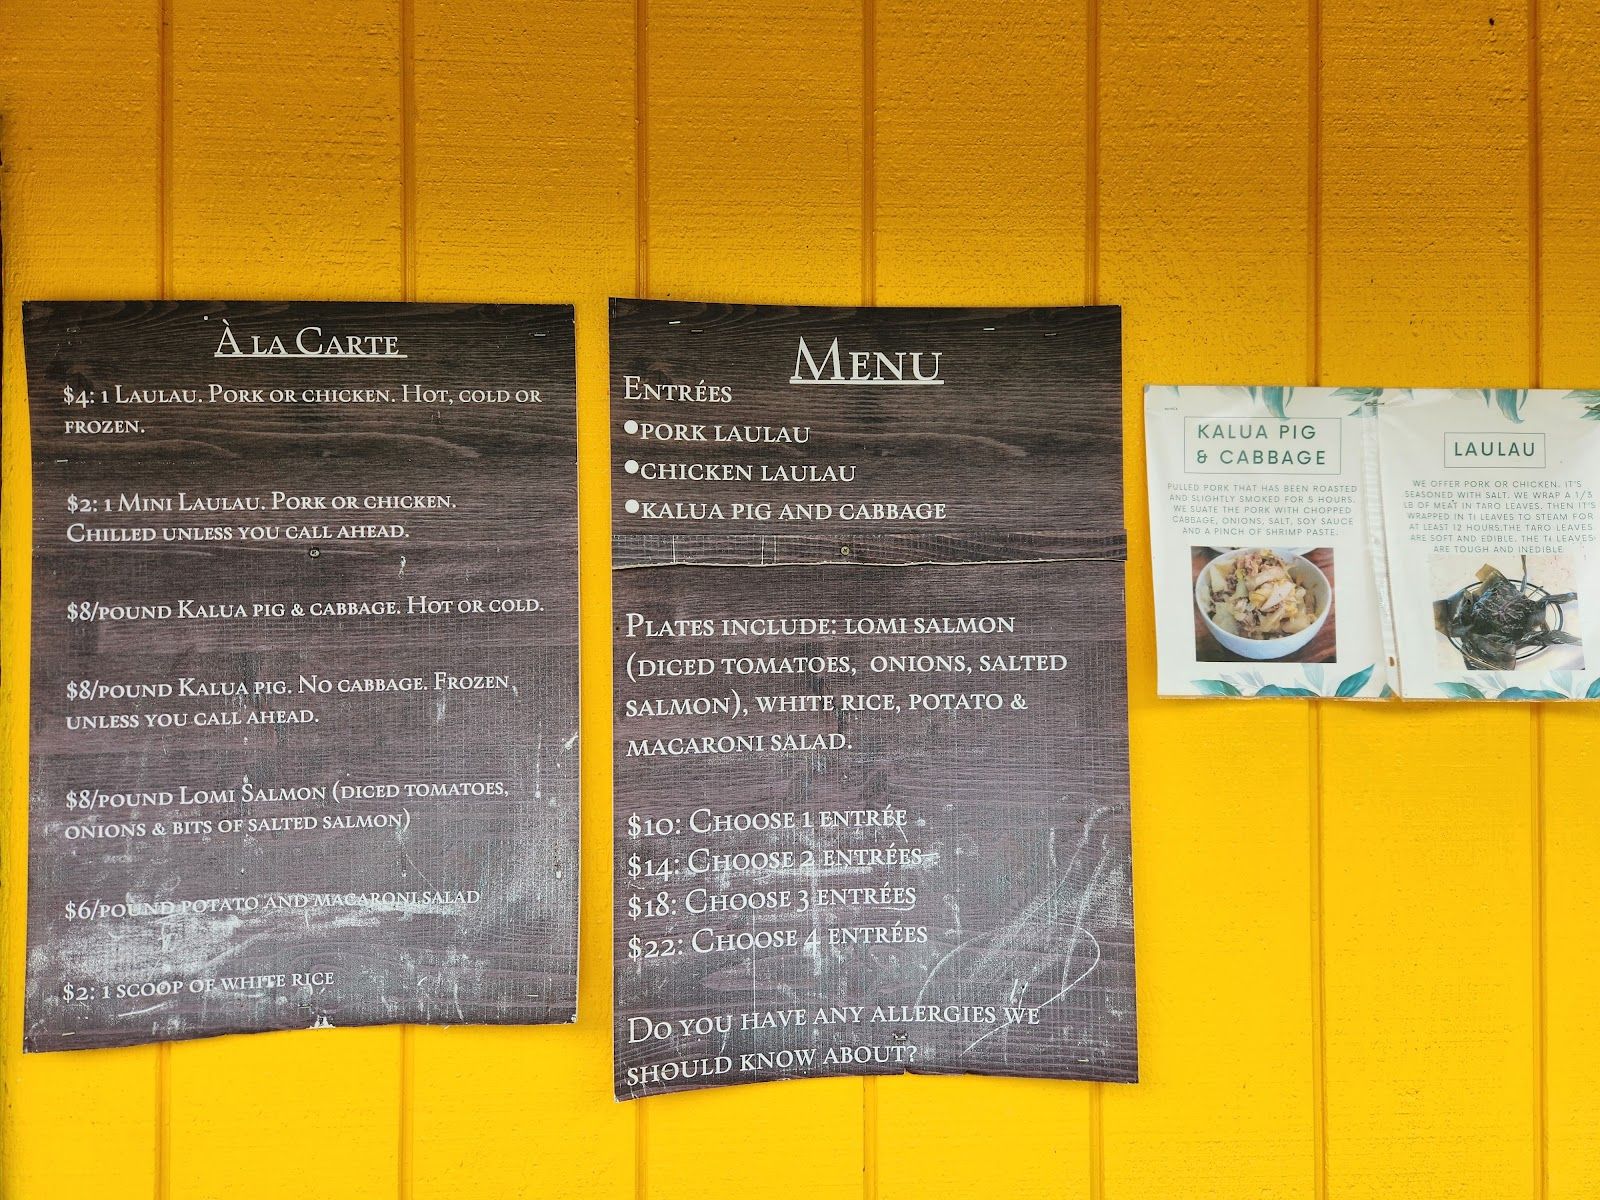 À la Carte
$4: 1 Laulau. Pork or chicken. Hot, cold or
frozen.
$2: 1 Mini Laulau. Pork or chicken.
Chilled unless you call ahead.
$8/pound Kalua pig & cabbage. Hot or cold.
$8/pound Kalua pig. No cabbage. Frozen
unless you call ahead.
$8/pound Lomi Salmon (diced tomatoes,
onions & bits of salted salmon)
$6/pound potato and macaroni salad
$2: 1 scoop of white rice
Menu
Entrées
•pork laulau
•chicken laulau
•kalua pig and cabbage
Plates include: lomi salmon
(diced tomatoes, onions, salted
salmon), white rice, potato &
macaroni salad.
$10: Choose 1 entrée
$14: Choose 2 entrées
$18: Choose 3 entrées
$22: Choose 4 entrées
Do you have any allergies we
should know about?
KALUA PIG
& CABBAGE
PULLED PORK THAT HAS BEEN ROASTED
AND SLIGHTLY SMOKED FOR 5 HOURS.
WE SUATE THE PORK WITH CHOPPED
CABBAGE, ONIONS, SALT, SOY SAUCE
AND A PINCH OF SHRIMP PASTE.
LAULAU
WE OFFER PORK OR CHICKEN. IT'S
SEASONED WITH SALT. WE WRAP A 1/3
LB OF MEAT IN TARO LEAVES. THEN IT'S
WRAPPED IN TI LEAVES TO STEAM FOR
AT LEAST 12 HOURS.THE TARO LEAVES
ARE SOFT AND EDIBLE. THE TI LEAVES
ARE TOUGH AND INEDIBLE.